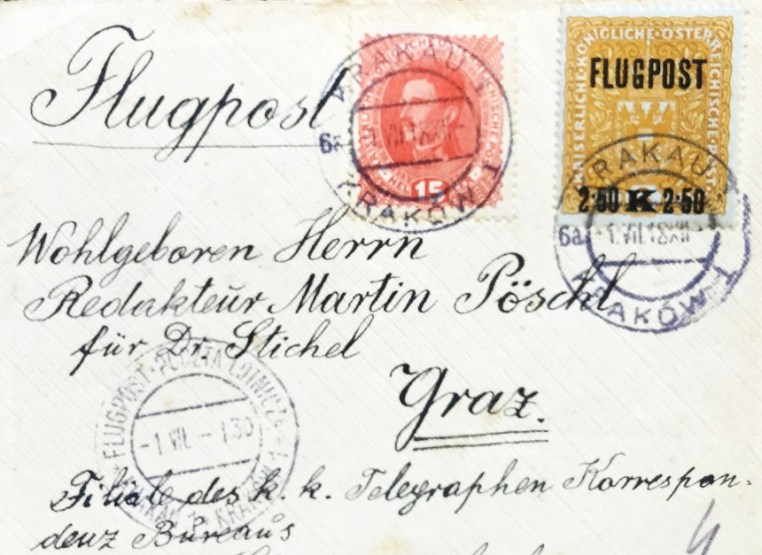 Flugpost
KRAKAU 1
15
6a
KRAKÓW 1
KAISERLICHE·KÖNIGLICHE·ÖSTERREICHISCHE·POST
FLUGPOST
2·50 K 2·50
KRAKAU 1
6a -1.VII.18 XII-
KRAKÓW 1
Wohlgeboren Herrn
Redakteur Martin Pöschl
für Dr. Stichel
Graz.
FLUGPOST·POCZTA LOTNICZA
-1.VII.-730
KRAKAU 1 KRAKÓW 1
Filiale des k. k. Telegraphen Korrespon-
denz Bureaus